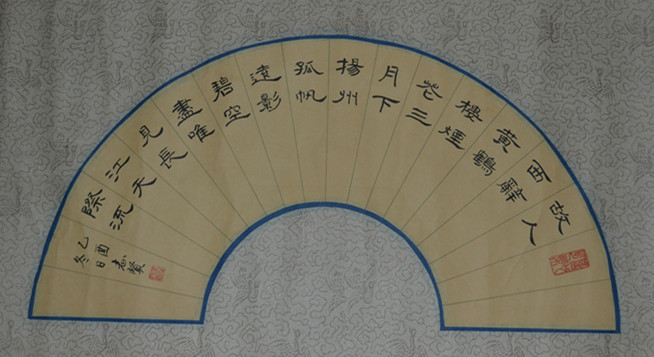 故人
西辭
黃鶴
樓煙
花三
月下
揚州
孤帆
遠影
碧空
盡唯
見長
江天
際流
乙酉
冬日
志賢